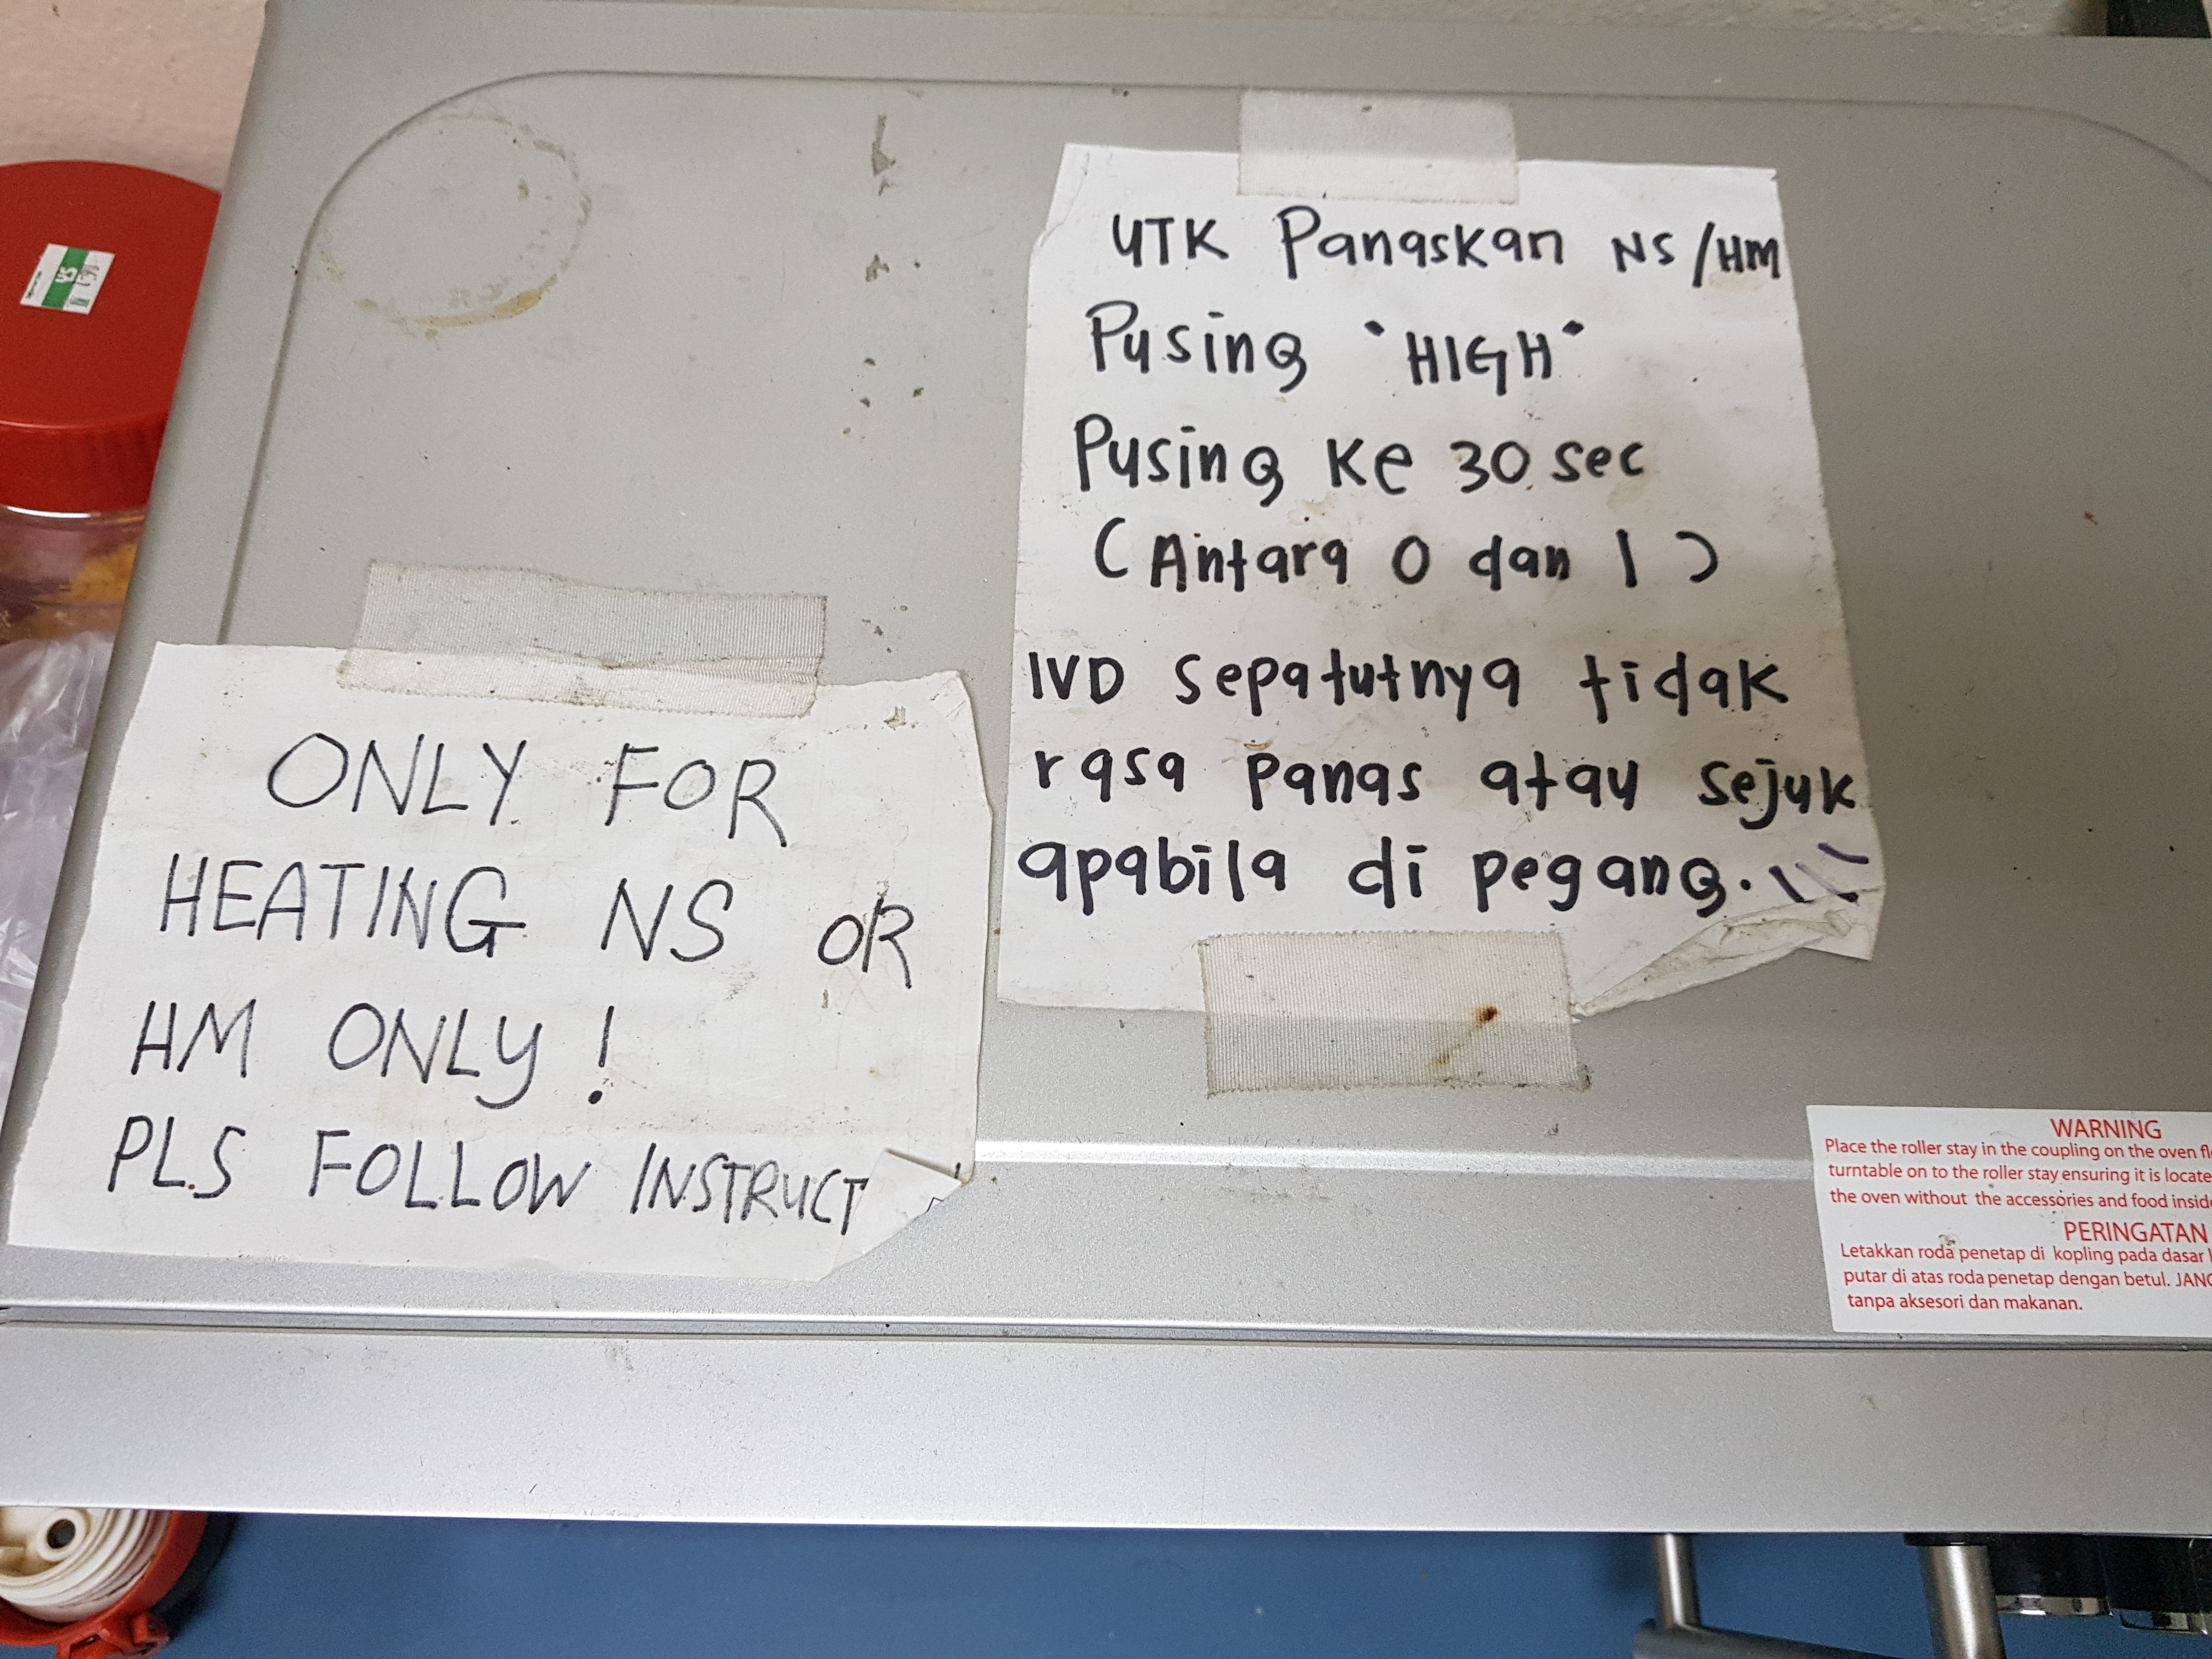 UTK Panaskan NS/HM
Pusing "HIGH"
Pusing Ke 30 sec
(Antara 0 dan 1)
IVD sepatutnya tidak
rasa panas atau sejuk
apabila di pegang.
ONLY FOR
HEATING NS OR
HM ONLY!
PLS FOLLOW INSTRUCT
WARNING
Place the roller stay in the coupling on the oven
turntable on to the roller stay ensuring it is
the oven without the accessories and food
PERINGATAN
Letakkan roda penetap di kopling pada dasar
putar di atas roda penetap dengan betul.
tanpa aksesori dan makanan.